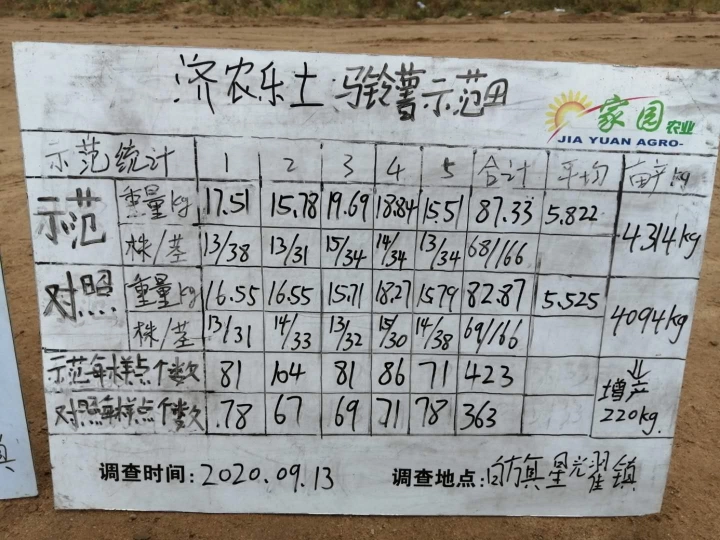 济农乐土 马铃薯示范田
家园农业
JIA YUAN AGRO-
示范统计 1 2 3 4 5 合计 平均 亩产kg
示范 重量kg 17.51 15.78 19.69 18.84 15.51 87.33 5.822 4314kg
株/茎 13/38 13/31 15/34 14/34 13/34 68/166
对照 重量kg 16.55 16.55 15.71 18.27 15.79 82.87 5.525 4094kg
株/茎 13/31 14/33 13/32 15/30 14/38 69/166
示范每样点个数 81 104 81 86 71 423 增产
对照每样点个数 78 67 69 71 78 363 220kg
调查时间: 2020.09.13 调查地点: 旗星耀镇